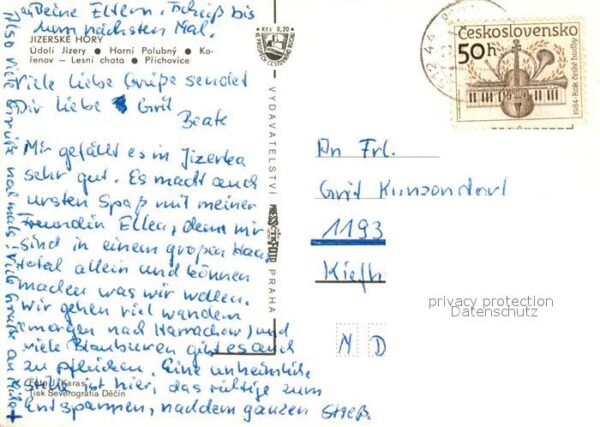 an Deine Eltern. Tschüß bis
zum nächsten Mal.
JIZERSKE HORY
Údolí Jizery ● Horní Polubný ● Ko-
řenov — Lesní chata ● Příchovice
Viele liebe Grüße sendet
Dir liebe Grit
Beate
Mir gefällt es in Jizerka
sehr gut. Es macht auch
urst Spaß mit meiner
Freundin Ellen, denn wir
sind in einem großen
Hotel allein und können
machen was wir wollen.
Wir gehen viel wandern
(morgen nach Harrachov) und
viele Blaubeeren gibt es auch
zu pflücken. Eine unheimliche
Stille ist hier, das richtige zum
Entspannen, nach dem ganzen Streß.
Foto J. Karas
Tisk Severografia Děčín
Also viele Grüße nochmals! Viele Grüße an
Kčs 0,20
VYDAVATELSTVÍ PRESSFOTO PRAHA
Československo
50h
1984-ROK české hudby
An Frl.
Grit Kunzendorf
1193
N D
privacy protection
Datenschutz